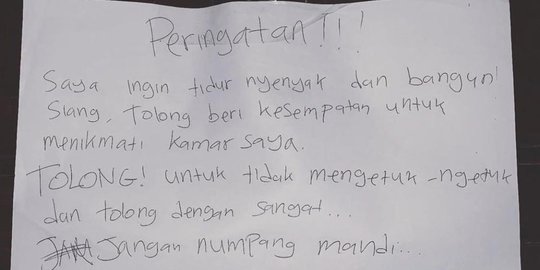 Peringatan!!!
Saya ingin tidur nyenyak dan bangun
Siang, Tolong beri kesempatan untuk
menikmati kamar saya.
TOLONG! untuk tidak mengetuk-ngetuk
dan tolong dengan sangat...
Jangan numpang mandi...